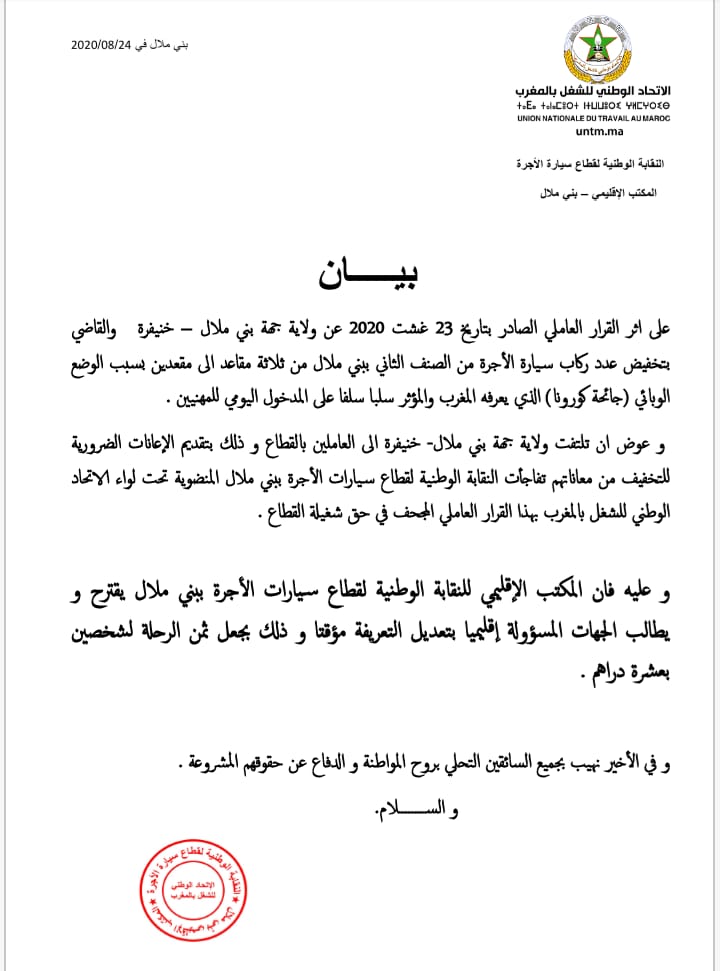 بني ملال في 2020/08/24
الاتحاد الوطني للشغل بالمغرب
UNION NATIONALE DU TRAVAIL AU MAROC
untm.ma
النقابة الوطنية لقطاع سيارة الأجرة
المكتب الإقليمي – بني ملال
بيــــــان
على اثر القرار العاملي الصادر بتاريخ 23 غشت 2020 عن ولاية جهة بني ملال – خنيفرة والقاضي
بتخفيض عدد ركاب سيارة الأجرة من الصنف الثاني ببني ملال من ثلاثة مقاعد الى مقعدين بسبب الوضع
الوبائي (جائحة كورونا) الذي يعرفه المغرب والمؤثر سلبا سلفا على المدخول اليومي للمهنيين .
و عوض ان تلتفت ولاية جهة بني ملال- خنيفرة الى العاملين بالقطاع و ذلك بتقديم الإعانات الضرورية
للتخفيف من معاناتهم تفاجأت النقابة الوطنية لقطاع سيارات الأجرة ببني ملال المنضوية تحت لواء الاتحاد
الوطني للشغل بالمغرب بهذا القرار العاملي المجحف في حق شغيلة القطاع .
و عليه فان المكتب الإقليمي للنقابة الوطنية لقطاع سيارات الأجرة ببني ملال يقترح و
يطالب الجهات المسؤولة إقليميا بتعديل التعريفة مؤقتا و ذلك بجعل ثمن الرحلة لشخصين
بعشرة دراهم .
و في الأخير نهيب بجميع السائقين التحلي بروح المواطنة و الدفاع عن حقوقهم المشروعة .
و الســــــلام.
النقابة الوطنية لقطاع سيارة الأجرة
الاتحاد الوطني
للشغل بالمغرب
المكتب الإقليمي بني ملال